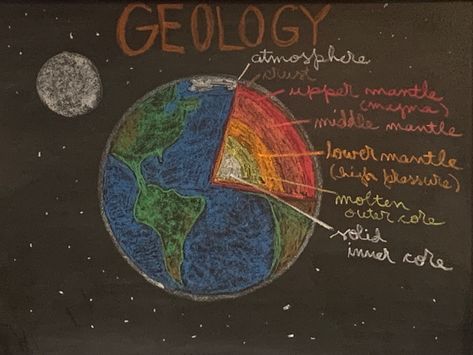 GEOLOGY
atmosphere
crust
upper mantle
(magma)
middle mantle
lower mantle
(high pressure)
molten
outer core
solid
inner core